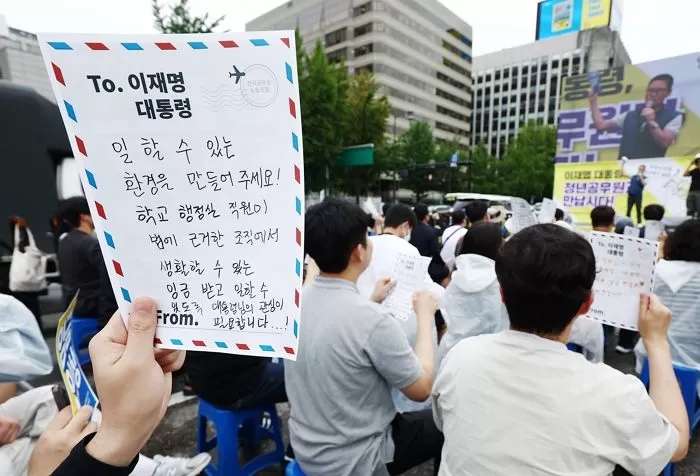 To. 이재명
대통령
전국공무원
노동조합
일 할 수 있는
환경을 만들어 주세요!
학교 행정실 직원이
법에 근거한 조직에서
생활할 수 있는
임금 받고 일할 수
있도록 대통령님의 관심이
필요합니다...!
From.
통령,
이재명 대통
청년공무원
만납시다!
To. 이재명
대통령